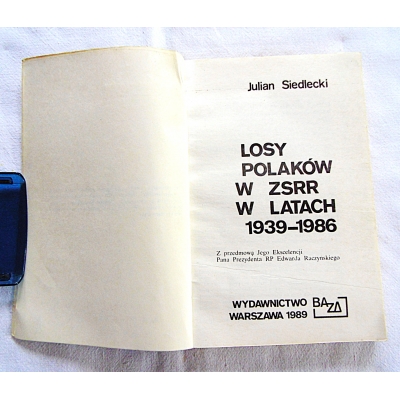 Julian Siedlecki
LOSY
POLAKÓW
W ZSRR
W LATACH
1939–1986
Z przedmową Jego Ekscelencji
Pana Prezydenta RP Edwarda Raczyńskiego
WYDAWNICTWO BAZA
WARSZAWA 1989